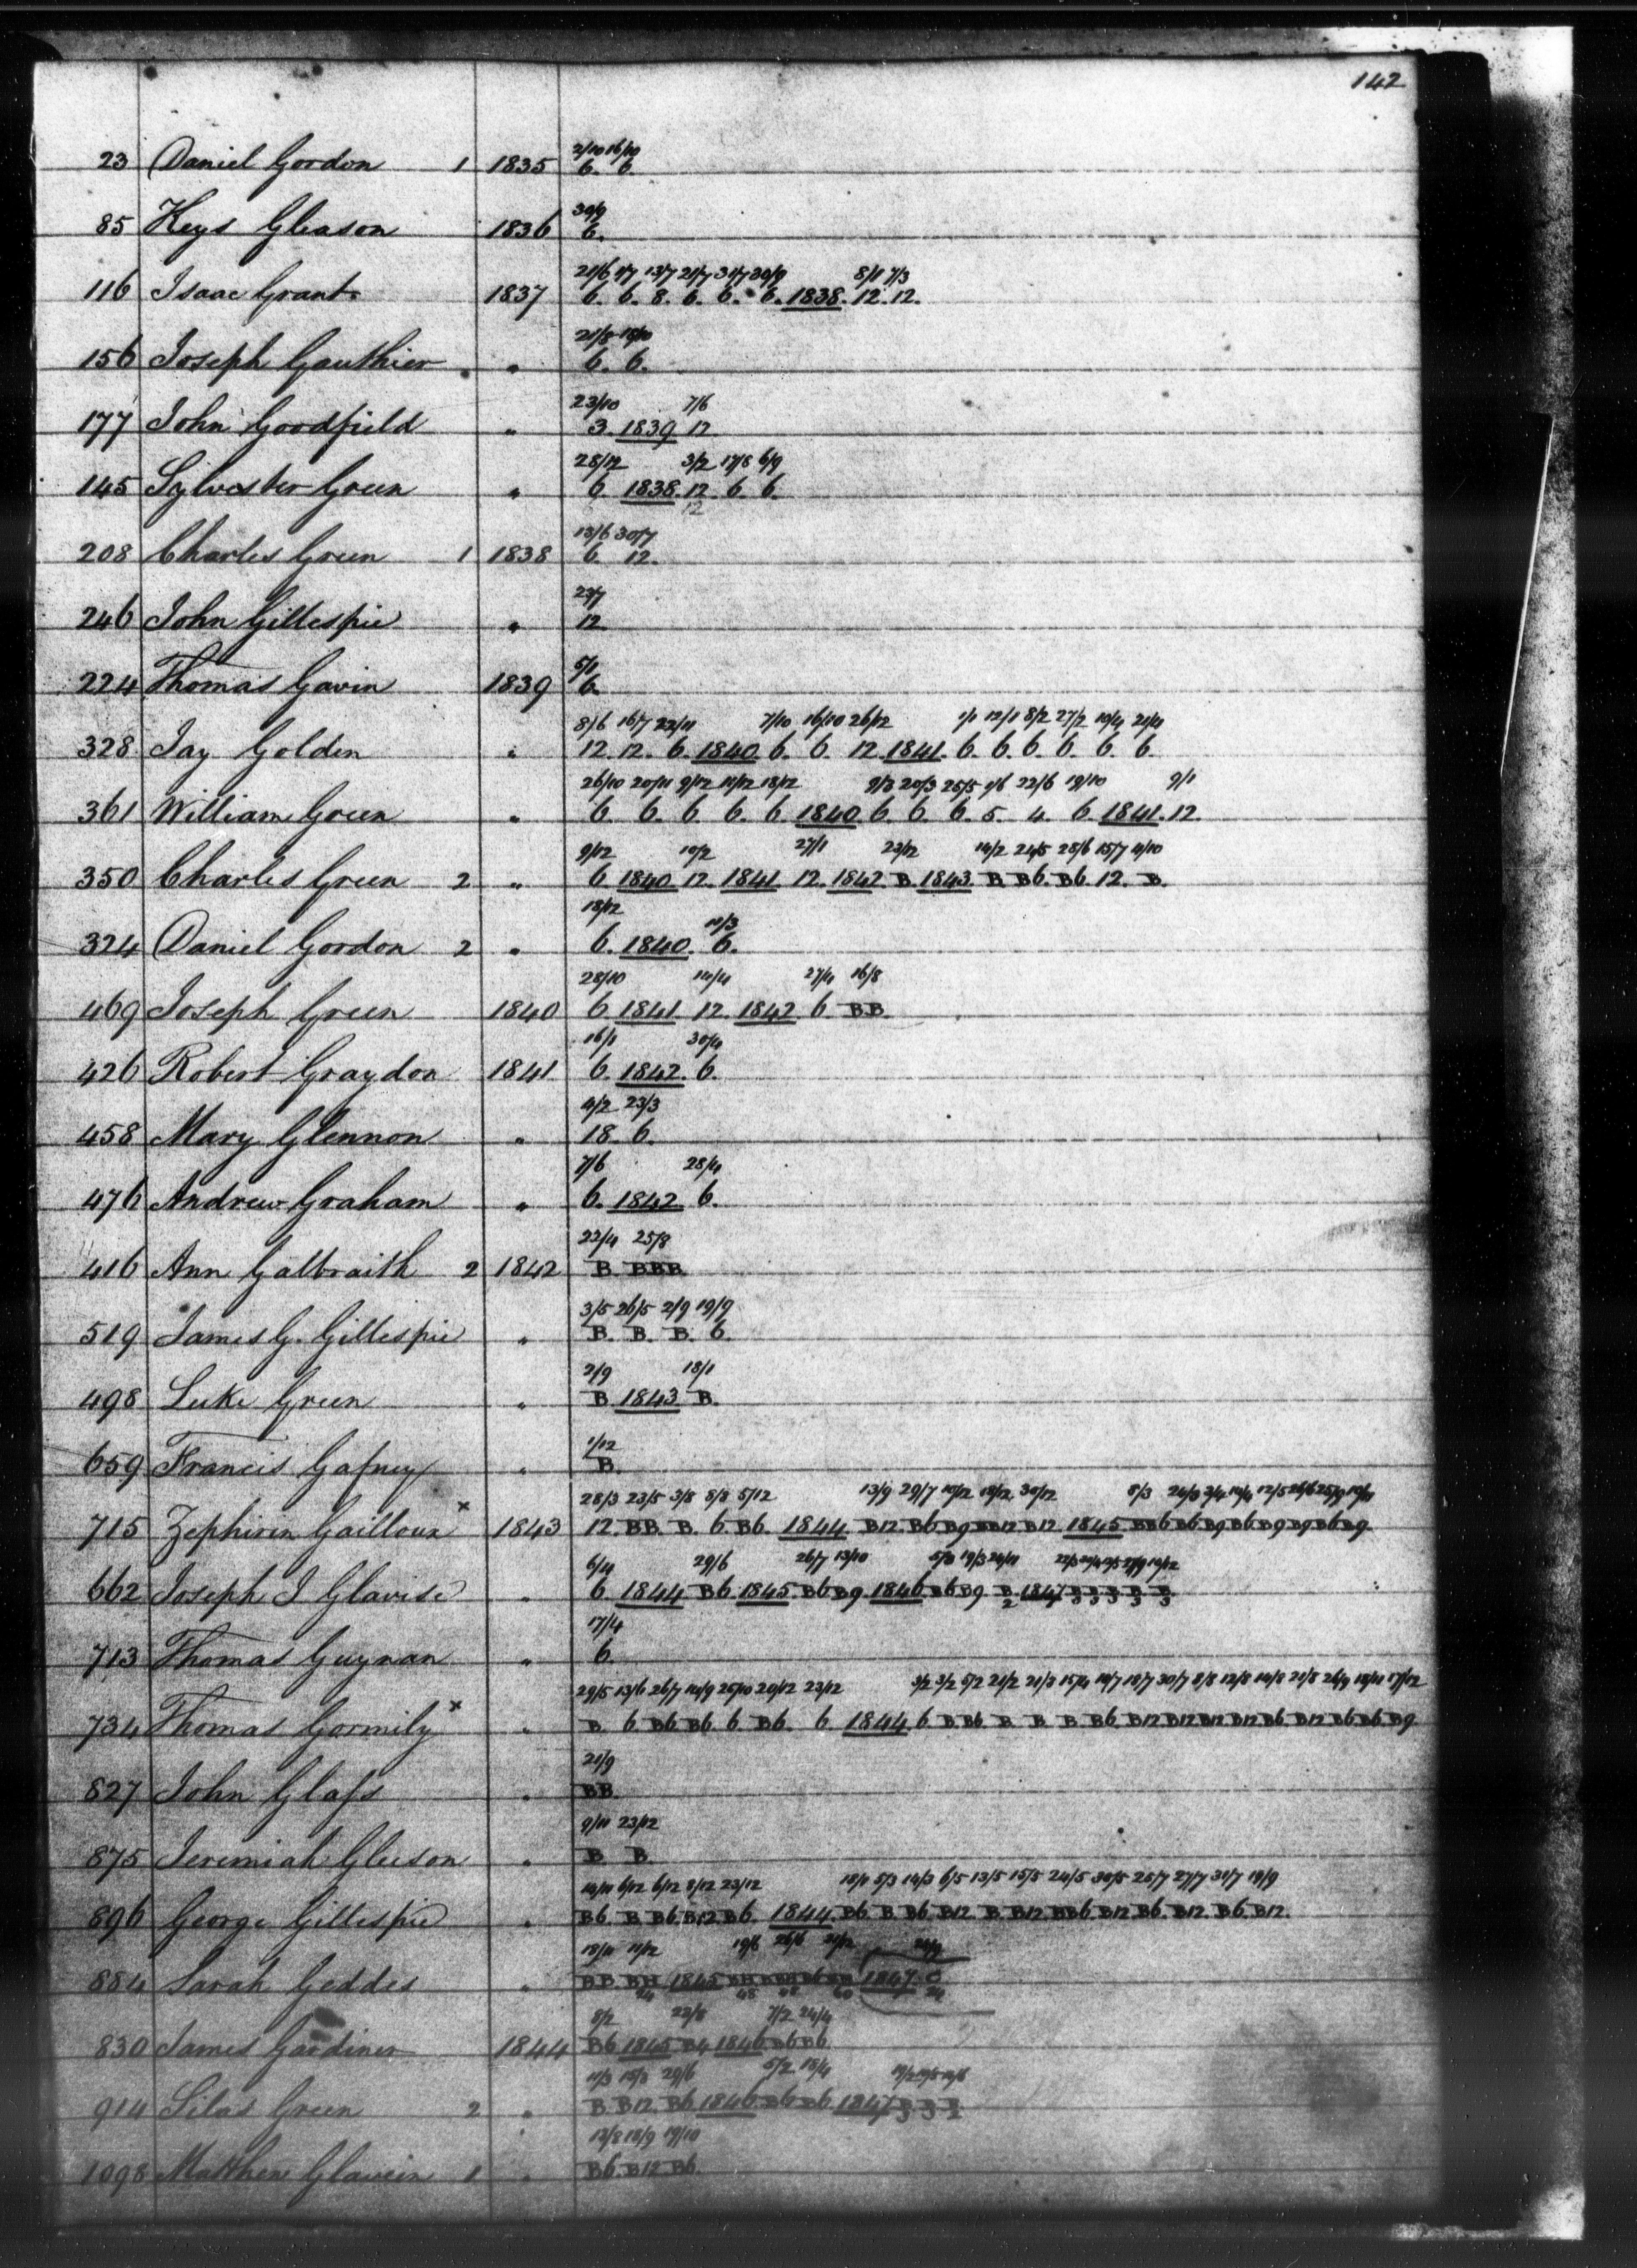 142
2/10 16/10
23 Daniel Gordon 1 1835 6. 6.
30/9
85 Keys Gleason 1836 6.
21/6 1/7 13/7 21/7 31/7 30/9 8/1 7/3
116 Isaac Grant 1837 6. 6. 8. 6. 6. 6. 1838. 12. 12.
21/8 18/10
156 Joseph Gauthier " 6. 6.
23/10 7/6
177 John Goodfield " 3. 1839 12
28/12 3/2 17/8 6/9
145 Sylvester Green " 6. 1838. 12. 6. 6.
12
13/6 30/7
208 Charles Green 1 1838 6. 12.
23/7
246 John Gillespie " 12
5/1
224 Thomas Gavin 1839 6.
8/6 16/7 22/11 7/10 16/10 26/12 1/1 12/1 8/2 27/2 10/4 21/4
328 Jay Golden " 12. 12. 6. 1840. 6. 6. 12. 1841. 6. 6. 6. 6. 6. 6.
26/10 20/11 9/12 11/12 18/12 20/3 25/5 22/6 19/10 9/1
361 William Green " 6. 6. 6. 6. 6 1840 6 6 6. 5. 4. 6. 1841. 12.
9/12 10/2 27/1 23/12 14/2 24/5 28/6 15/7 4/10
350 Charles Green 2 " 6. 1840 12. 1841. 12. 1842. B. 1843. B. B6. B6. 12. B.
18/12 11/3
324 Daniel Gordon 2 " 6. 1840. 6.
28/10 14/4 27/4 16/8
469 Joseph Green 1840 6 1841 12. 1842. 6 BB
16/1 30/4
426 Robert Graydon 1841 6. 1842. 6.
4/2 23/3
458 Mary Glennon " 18. 6.
7/6 28/4
476 Andrew Graham " 6. 1842. 6.
22/4 25/8
416 Ann Galbraith 2 1842 B. BBB
3/5 26/5 2/9 19/9
519 James G. Gillespie " B. B. B. 6.
2/9 18/1
498 Luke Green " B 1843 B.
1/12
659 Francis Gafney " B.
28/3 23/5 3/8 8/8 5/12 13/9 29/7 10/12 18/12 30/12 8/3
715 Zephirin Gailloux x 1843 12. BB. B. 6 B6. 1844. B12. B6 B9 B12 B12. 1845
6/11 29/6 26/7 13/10
662 Joseph J Glavise " 6 1844 B6. 1845. B6 B9. 1846 B6 B9 B 1847
2
17/4
713 Thomas Guynan " 6.
29/5 13/6 26/7 14/9 25/10 20/12 23/12 3/2 3/2 5/2 21/2 21/3 15/4 14/7 18/7 30/7 8/8 12/8 14/8 21/8 17/12
734 Thomas Gormily x " B 6 B6 B6. 6 B6. 6. 1844. 6 B B6 B B B B6 B12 B12 B12 B12 B6 B12 B6 B6 B9
21/9
827 John Glass " BB.
9/11 23/12
875 Jeremiah Gleeson " B. B.
14/11 6/12 6/12 8/12 23/12 5/3 14/3 6/5 13/5 15/5 24/5 30/5 25/7 27/7 31/7 19/9
896 George Gillespie " B6. B B6. B12 B6. 1844. B6 B B6 B12 B. B12 BB6 B12 B6. B12. B6. B12.
18/11 11/12 19/6 26/6
884 Sarah Geddes " BB. BH 1845 1847
24 48 48 60 24
8/2 22/8 7/2 24/4
830 James Gardiner 1844 B6 1845 B4 1846 B6 B6
11/3 29/6 5/2 18/4
914 Silas Green 2 " B. B12. B6 1846. B6 B6 1847
13/8 18/9 19/10
1098 Matthew Glavein 1 " B6. B12 B6.